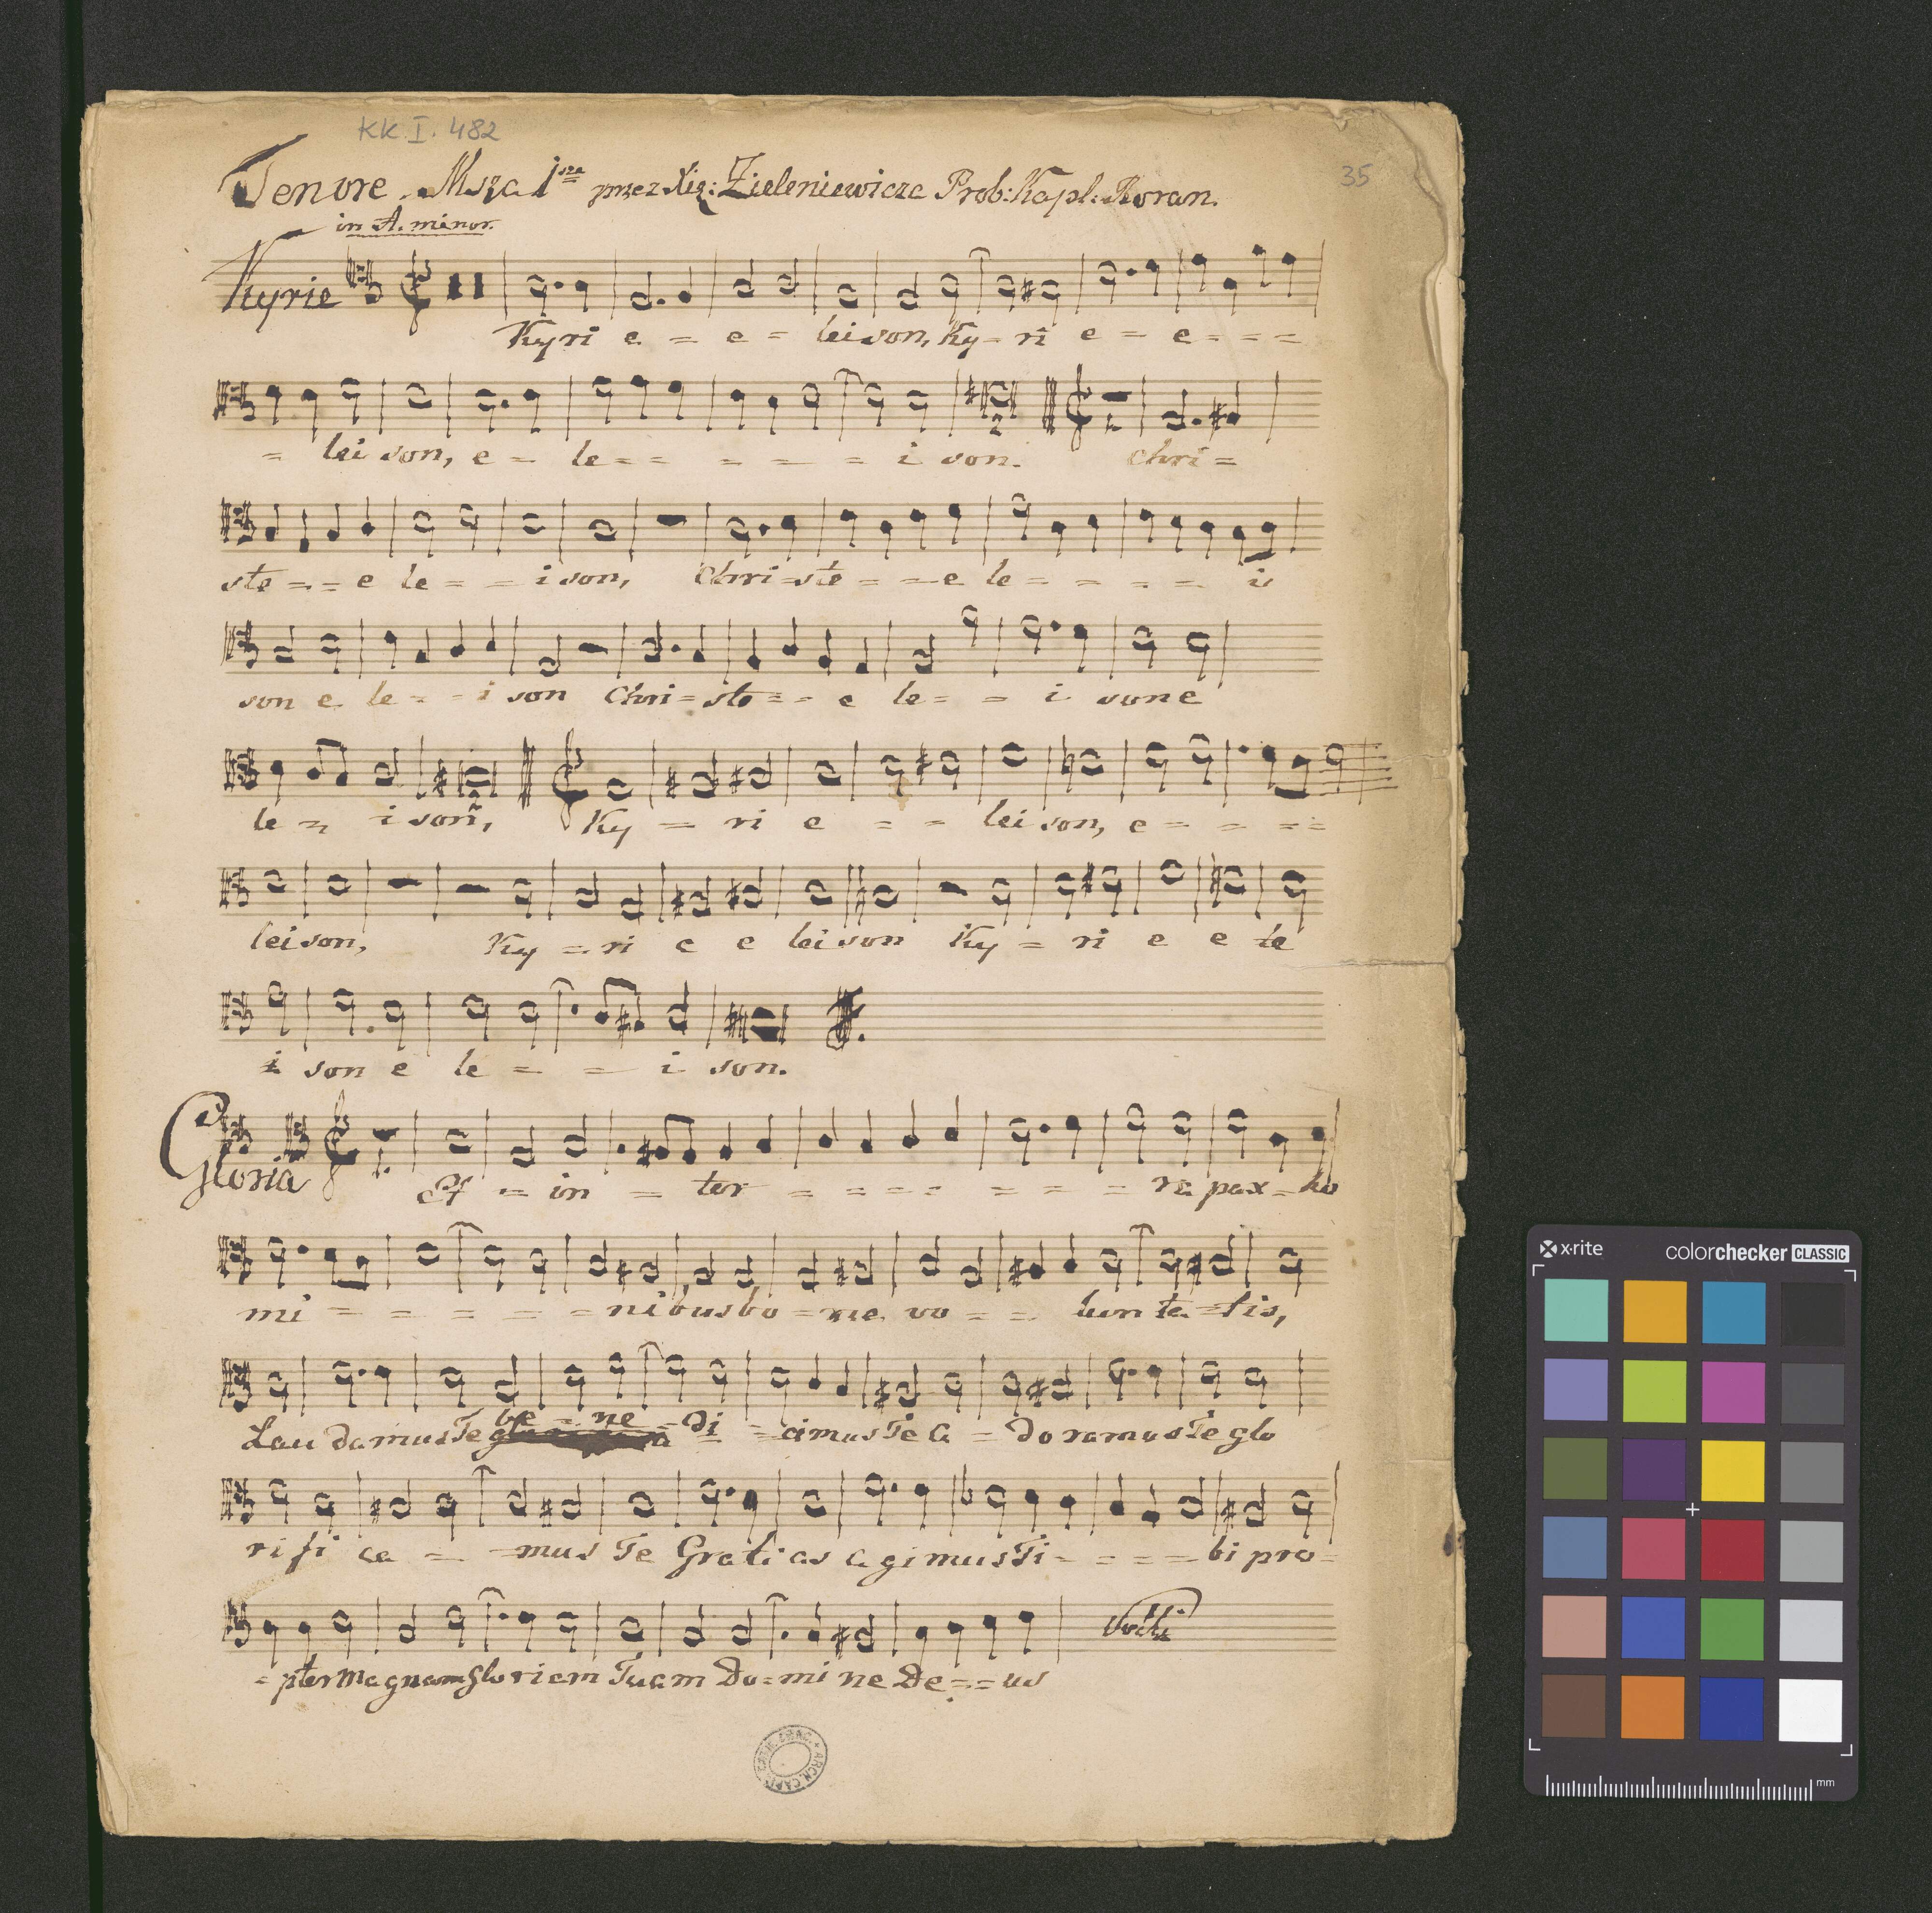 KK I. 482
35
Tenore. Msza 1sza przez Xię: Zieleniewicza Prob: Kapl: Roran.
in A. minor.
Kyrie
Kyri e = e = leison, Ky = ri e = e = = =
= lei son, e = le = = = = = i son. Chri =
ste = = e le = = i son, Chri = ste = = e le = = = = is
son e le = = i son Chri = ste = = e le = = i son e
le = i son, Ky = ri e = = lei son, e = = = =
lei son, Ky = ri e e lei son Ky = ri e e le
i son e le = = i son.
Gloria
Et = in = ter = = = = = = = ra pax = ho
mi = = = = = nibus bo = nae vo = = lun ta = tis,
be = ne = di
Lau damus Te = cimus Te a = do ramus Te glo
rifi ca = = mus Te Grati as a gi mus Ti = = = = bi pro =
= pter Magnam Gloriam Tuam Do = mi ne De = = us
Volti
ARCH. CAPIT. CATH. CRAC.
x-rite
colorchecker CLASSIC
mm